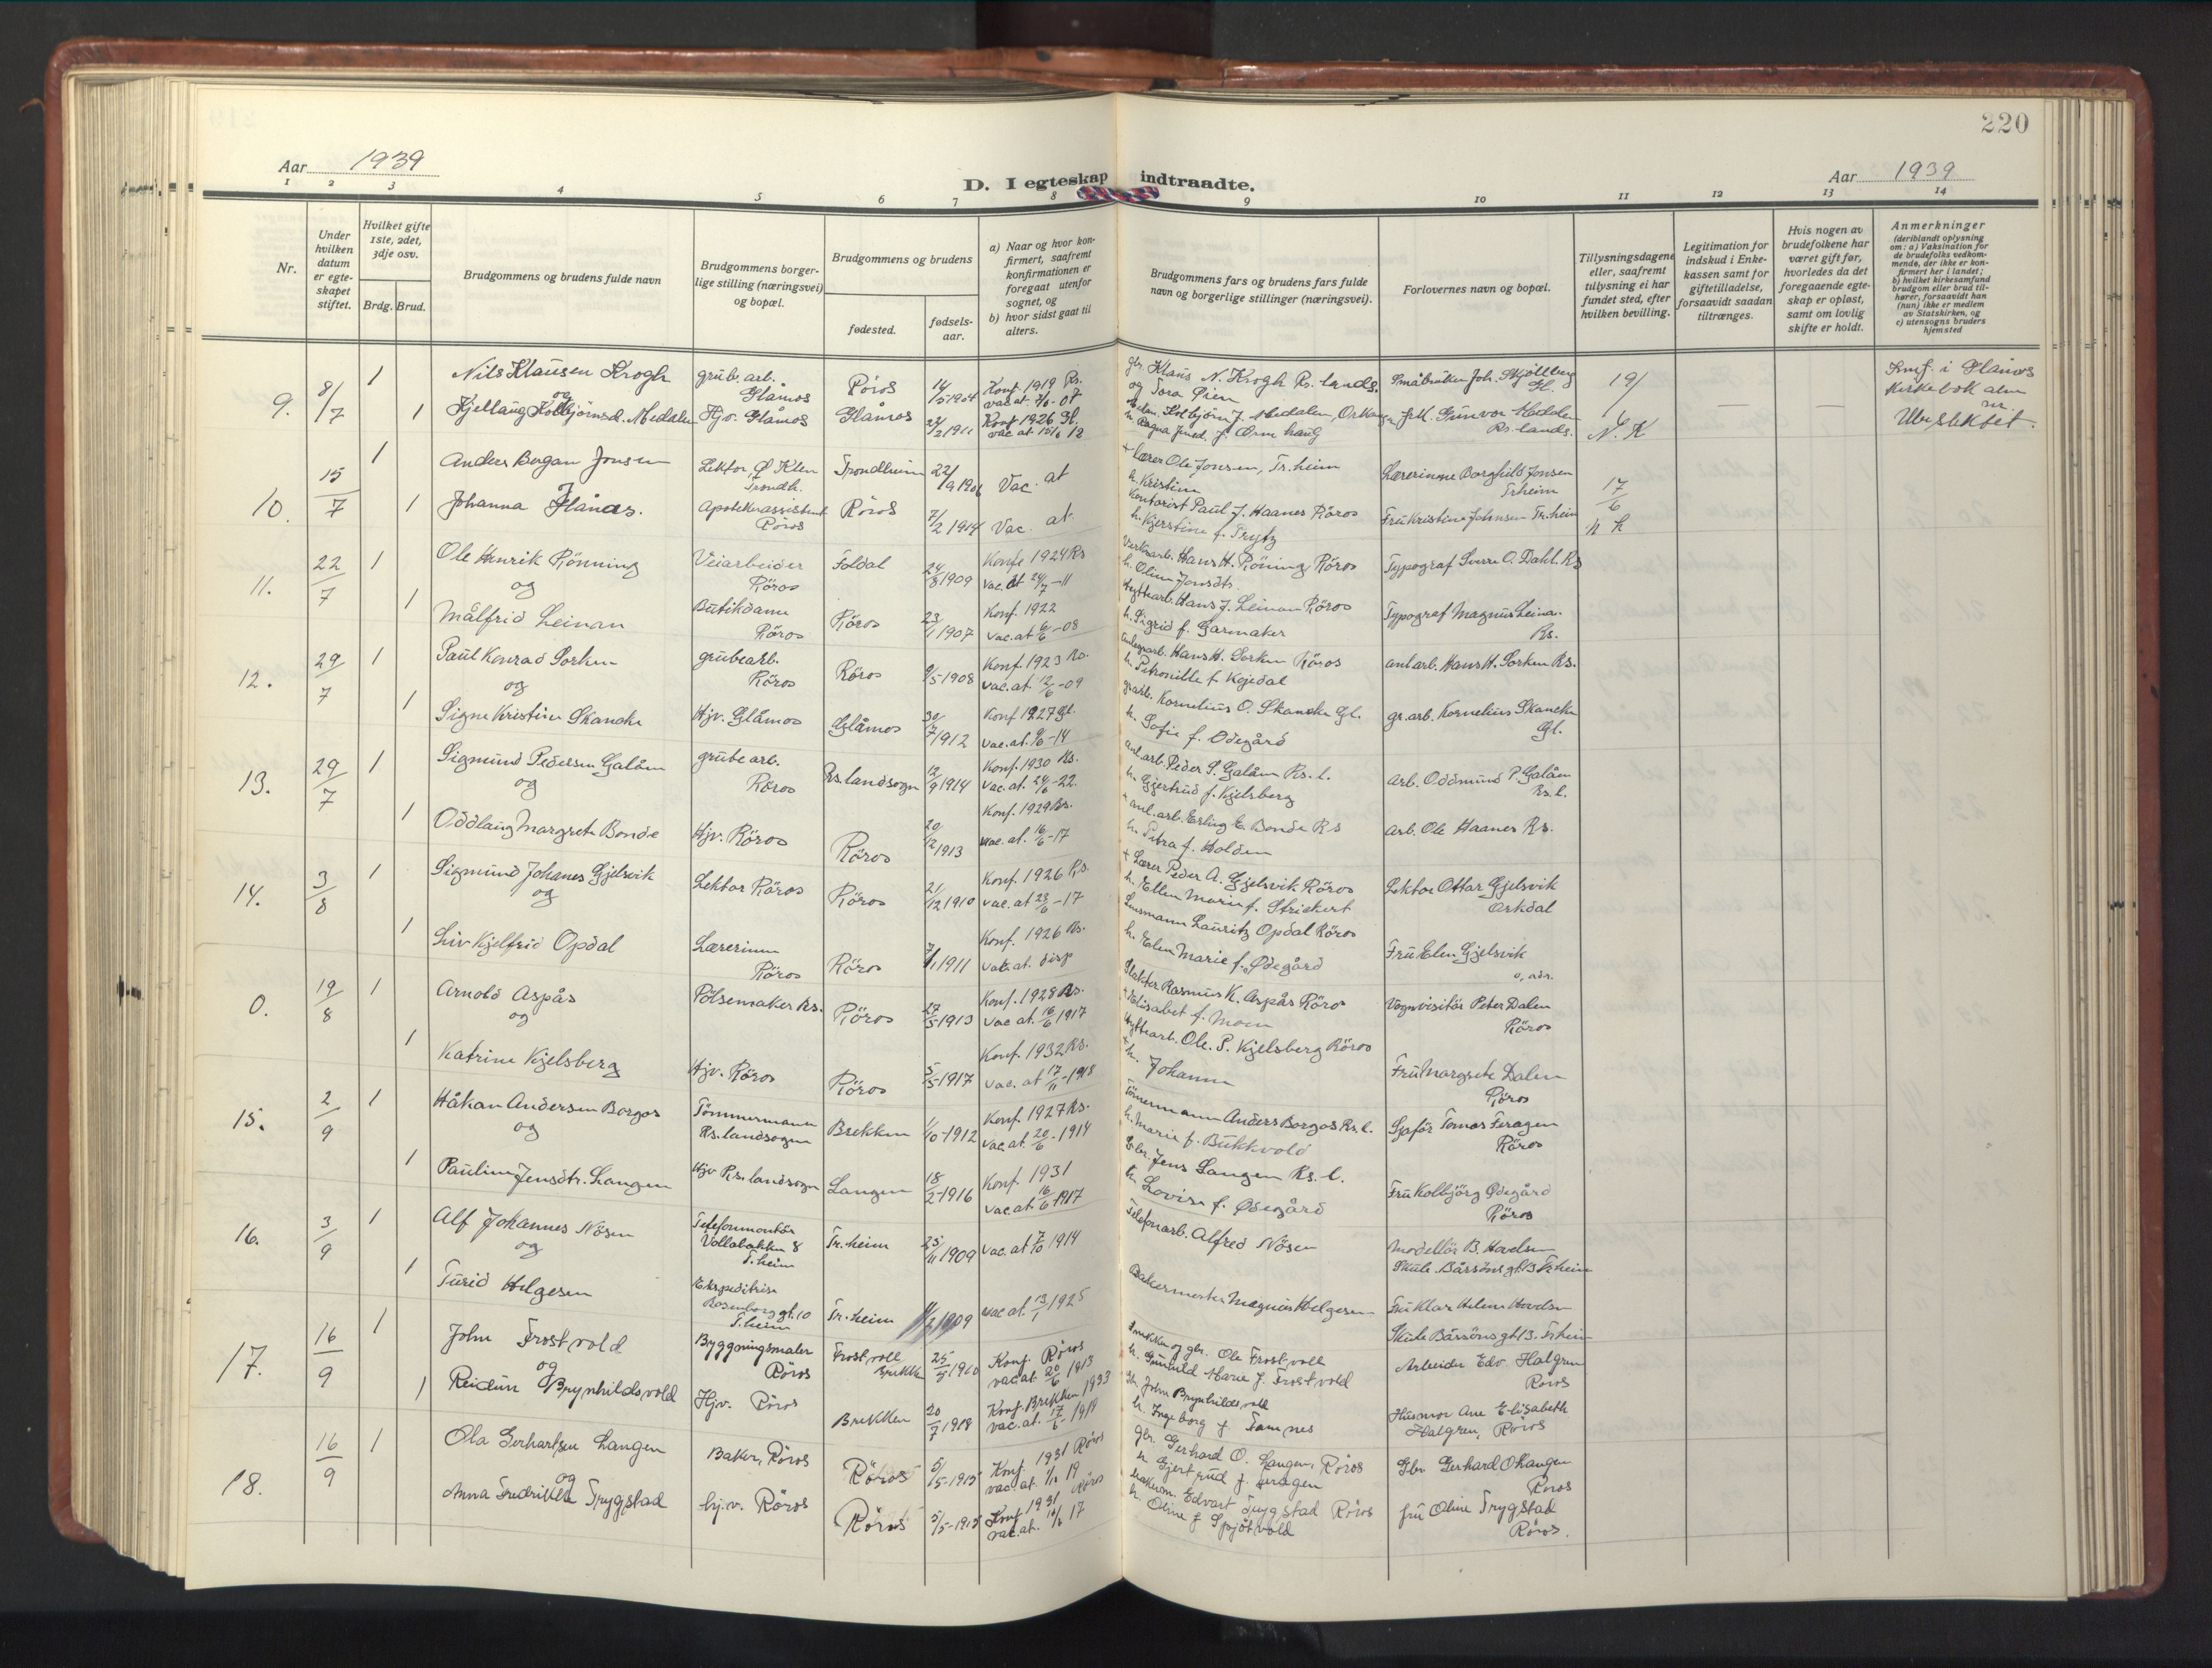 220
Aar 1939
D. I egteskap indtraadte.
Aar 1939
1 2 3 4 5 6 7 8 9 10 11 12 13 14
Nr.
Under hvilken datum er egte-skapet stiftet.
Hvilket gifte 1ste, 2det, 3dje osv.
Brdg. Brud.
Brudgommens og brudens fulde navn
Brudgommens borger-lige stilling (næringsvei) og bopæl.
Brudgommens og brudens
fødested.
fødsels-aar.
a) Naar og hvor kon-firmert, saafremt konfirmationen er foregaat utenfor sognet, og
b) hvor sidst gaat til alters.
Brudgommens fars og brudens fars fulde navn og borgerlige stillinger (næringsvei).
Forlovernes navn og bopæl.
Tillysningsdagene eller, saafremt tillysning ei har fundet sted, efter hvilken bevilling.
Legitimation for indskud i Enke-kassen samt for giftetilladelse, forsaavidt saadan tiltrænges.
Hvis nogen av brudefolkene har været gift før, hvorledes da det foregaaende egte-skap er opløst, samt om lovlig skifte er holdt.
Anmerkninger
(deriblandt oplysning om: a) Vaksination for de brudefolks vedkom-mende, der ikke er kon-firmert her i landet; b) hvilket kirkesamfund brudgom eller brud til-hører, forsaavidt han (hun) ikke er medlem av Statskirken, og c) utensogns bruders hjemsted
9. 8/7 1 Nils Klausen Krogh grub. arb. Glåmos Røros 14/5 1904 Konf. 1919 Rs. vac. at gbr. Klaus N. Krogh Rs. lands. og Tora Øien Småbruker Joh. Skjøllberg Gl. 19/6 N. K
og
1 Kjellaug Kolbjørnsd. Medalen Hjv. Glåmos Glåmos 1911 Konf 1926 Gl. vac at 15/6 12 Kolbjørn J. Medalen, Orkanger Ragna f. Ørnhaug Gunvor Medalen Rs. lands.
kirkebok
Ubeslektet.
10. 15/7 1 Anders Bergan Jonsen Lektor, Ø Trondh. Trondheim 22/9 1906 Vac. at + Lærer Ole Jonsen, Tr.heim h. Kristine Lærerinne Borghild Jonsen Trheim 17/6 N K
1 Johanna Hånæs. Apotekerassistent Røros Røros 7/2 1914 Vac. at. Kontorist Paul J. Haanes Røros h. Kjerstine f. Trytz Fru Kristine Johnsen Tr.heim
11. 22/7 1 Ole Henrik Rønning Veiarbeider Røros Foldal 24/8 1909 Konf. 1924 Rs vac. at 24/7 -11 Verksarb. Hans H. Røning, Røros h. Oline Jonsdtr Typograf Sverre O. Dahl. Rs
og
1 Målfrid Leinan Butikdame Røros Røros 23/1 1907 Konf. 1922 vac. at 6/6 -08 Hyttearb. Hans J. Leinan Røros h. Sigrid f. Garmaker Typograf Magnus Leinan. Rs.
12. 29/7 1 Paul Konrad Sorken grubearb. Røros Røros 9/5 1908 Konf. 1923 Rs. vac. at. 12/6 -09 Hans H. Sorken Røros h. Petronille f. Kojedal anl.arb. Hans H. Sorken Rs.
og
1 Signe Kristine Skancke Hjv. Glåmos Glåmos 30/7 1912 Konf 1927 gl. vac. at. 9/6 -14 gr.arb. Kornelius O. Skancke Gl. h. Sofie f. Ødegård gr. arb. Kornelius Skancke Gl.
13. 29/7 1 Sigmund Pedersen Galåen grubearb. Røros Rs. landsogn 12/9 1914 Konf. 1930 Rs. vac. at. 24/6 -22. anl.arb. Peder S. Galåen Rs. l. h. Gjertrud f. Kjelsberg Arb. Oddmund P. Galåen Rs. l.
og
1 Oddlaug Margrete Bonde Hjv. Røros Røros 20/12 1913 Konf. 1929 Rs. vac. at. 16/6 -17 + anl.arb. Erling E. Bonde Rs h. Petra f. Holden Arb. Ole Haanes Rs.
14. 3/8 1 Sigmund Johanes Gjelsvik Lektor Røros Røros 21/12 1910 Konf. 1926 Rs. vac. at 23/6 -17 + Lærer Peder A. Gjelsvik Røros h. Ellen Marie f. Strickert Lektor Ottar Gjelsvik Orkdal
og
1 Liv Kjelfrid Opdal Lærerinne Røros Røros 7/1 1911 Konf. 1926 Rs. vac. at. disp Lensmann Lauritz Opdal Røros h. Elen Marie f. Ødegård Fru Elen Gjelsvik
0. 19/8 1 Arnold Aspås Pølsemaker Rs. Røros 27/5 1913 Konf. 1928 Rs. vac at. 16/6 1917 Slakter Rasmus K. Aspås Røros + Elisabet f. Moen Vognvisitør Peter Dalen Røros
og
1 Katrine Kjelsberg Hjv. Røros Røros 5/5 1917 Konf. 1932 Rs. vac. at 17/11 -1918 Hyttearb. Ole. P. Kjelsberg Røros h. Johanne Fru Margrete Dalen Røros
15. 2/9 1 Håkan Andersen Borgos Tømmermann Rs. landsogn Brekken 1/10-1912 Konf. 1927 Rs. vac at 20/6 -1914 Tømermann Anders Borgos Rs. l. h. Marie f. Bukkvold Sjafør Tomas Feragen Røros
og
1 Pauline Jensdtr. Langen Hjv Rs. landsogn Langen 18/2 1916 Konf. 1931 vac at. 16/6 1917 Gbr. Jens Langen Rs. l. h. Lovise f. Ødegård Fru Kolbjørg Ødegård Røros
16. 3/9 1 Alf Johannes Nøsen Telefonmontør Vollabakken 8 T.heim Tr.heim 25/11 1909 vac. at 7/10 1914 Telefonarb. Alfred Nøsen Modellør B. Hovelsen Skule Bårsöns gt. 13 Trheim
og
1 Turid Helgesen Ekspeditrise Rosenborg gt. 10 T.heim Tr.heim 1909 vac at. 13/1 1925 Bakermester Magnus Helgesen Fru Klar Helene Hovelsen Skule Bårsöns gt 13. Trheim
17. 16/9 1 John Frostvold Byggningsmaler Røros Frostvoll Brekke 25/5 1910 Konf. Røros vac at. 20/6 1913 Snekker og gbr. Ole Frostvoll h. Gunhild Marie f. Frostvold Arbeider Edv. Halgren Røros
og
1 Reidun Brynhildsvold Hjv. Røros Brekken 20/7 1918 Konf. Brekken 1933 vac. at. 17/6 -1919 Gbr. John Brynhildsvoll h. Ingeborg f. Tamnes Husmor Ane Elisabeth Halgren, Røros
18. 16/9 1 Ola Gerhartsen Langen Baker, Røros Røros 5/5-1915 Konf. 1931 Røros vac. at. 19 gbr. Gerhard O. Langen, Røros h. Gjertrud f. Gbr Gerhard O Langen Røros
og
Anna Fredrikke Trygstad hj.v. Røros Røros 5/5-1915 Konf. 1931 Røros vac. at. 10/6 17 Edvart Trygstad Røros h. Oline f Spjøtvold fru Oline Trygstad Røros.